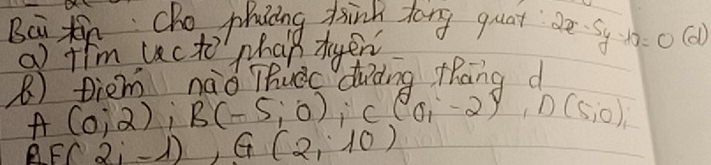 Bài tập : Cho phương trình tổng quát : 2x - 5y - 10 = 0 (d)
a) Tìm vec tơ pháp tuyến
b) Điểm nào Thuộc đường thẳng d
A (0; 2) ; B(-5; 0) ; C (0; -2) , D (5; 0);
E( 2; -1) , G (2; 10)